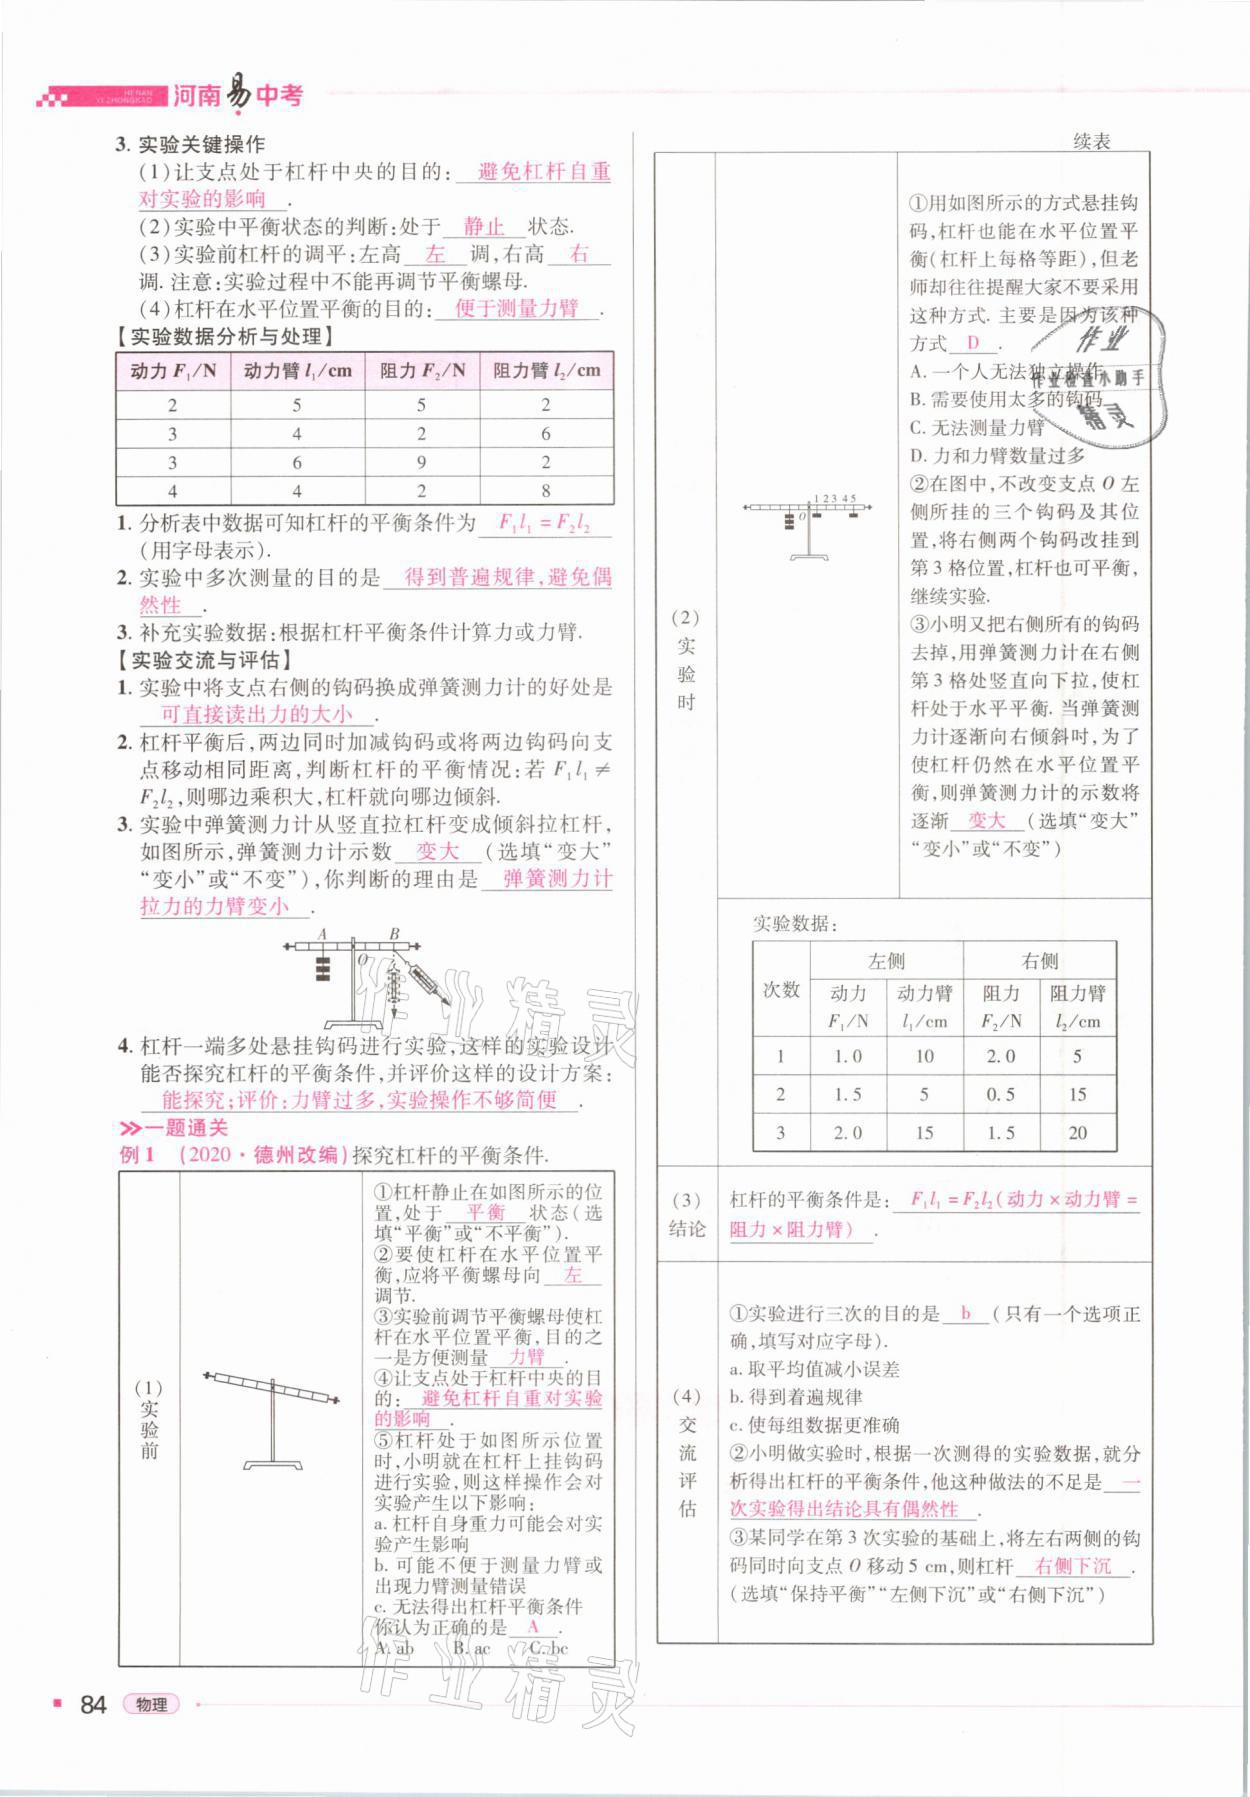 HENAN
YI ZHONGKAO
河南易中考
3. 实验关键操作
(1)让支点处于杠杆中央的目的: 避免杠杆自重
对实验的影响 .
(2)实验中平衡状态的判断:处于 静止 状态.
(3)实验前杠杆的调平:左高 左 调,右高 右
调. 注意:实验过程中不能再调节平衡螺母.
(4)杠杆在水平位置平衡的目的: 便于测量力臂 .
【实验数据分析与处理】
动力 F₁/N 动力臂 l₁/cm 阻力 F₂/N 阻力臂 l₂/cm
2 5 5 2
3 4 2 6
3 6 9 2
4 4 2 8
1. 分析表中数据可知杠杆的平衡条件为 F₁l₁=F₂l₂
(用字母表示).
2. 实验中多次测量的目的是 得到普遍规律,避免偶
然性 .
3. 补充实验数据:根据杠杆平衡条件计算力或力臂.
【实验交流与评估】
1. 实验中将支点右侧的钩码换成弹簧测力计的好处是
可直接读出力的大小 .
2. 杠杆平衡后,两边同时加减钩码或将两边钩码向支
点移动相同距离,判断杠杆的平衡情况:若 F₁l₁≠
F₂l₂,则哪边乘积大,杠杆就向哪边倾斜.
3. 实验中弹簧测力计从竖直拉杠杆变成倾斜拉杠杆,
如图所示,弹簧测力计示数 变大 (选填“变大”
“变小”或“不变”),你判断的理由是 弹簧测力计
拉力的力臂变小 .
A B
O
4. 杠杆一端多处悬挂钩码进行实验,这样的实验设计
能否探究杠杆的平衡条件,并评价这样的设计方案:
能探究;评价:力臂过多,实验操作不够简便 .
一题通关
例1 (2020·德州改编)探究杠杆的平衡条件.
(1)
实
验
前
①杠杆静止在如图所示的位
置,处于 平衡 状态(选
填“平衡”或“不平衡”).
②要使杠杆在水平位置平
衡,应将平衡螺母向 左
调节.
③实验前调节平衡螺母使杠
杆在水平位置平衡,目的之
一是方便测量 力臂 .
④让支点处于杠杆中央的目
的: 避免杠杆自重对实验
的影响 .
⑤杠杆处于如图所示位置
时,小明就在杠杆上挂钩码
进行实验,则这样操作会对
实验产生以下影响:
a. 杠杆自身重力可能会对实
验产生影响
b. 可能不便于测量力臂或
出现力臂测量错误
c. 无法得出杠杆平衡条件
你认为正确的是 A .
A. ab B. ac C. bc
续表
(2)
实
验
时
1 2 3 4 5
O
①用如图所示的方式悬挂钩
码,杠杆也能在水平位置平
衡(杠杆上每格等距),但老
师却往往提醒大家不要采用
这种方式. 主要是因为该种
方式 D .
A. 一个人无法独立操作
B. 需要使用太多的钩码
C. 无法测量力臂
D. 力和力臂数量过多
②在图中,不改变支点 O 左
侧所挂的三个钩码及其位
置,将右侧两个钩码改挂到
第3格位置,杠杆也可平衡,
继续实验.
③小明又把右侧所有的钩码
去掉,用弹簧测力计在右侧
第3格处竖直向下拉,使杠
杆处于水平平衡. 当弹簧测
力计逐渐向右倾斜时,为了
使杠杆仍然在水平位置平
衡,则弹簧测力计的示数将
逐渐 变大 (选填“变大”
“变小”或“不变”)
实验数据:
次数 左侧 右侧
动力 F₁/N 动力臂 l₁/cm 阻力 F₂/N 阻力臂 l₂/cm
1 1.0 10 2.0 5
2 1.5 5 0.5 15
3 2.0 15 1.5 20
(3)
结论
杠杆的平衡条件是: F₁l₁=F₂l₂(动力×动力臂=
阻力×阻力臂) .
(4)
交
流
评
估
①实验进行三次的目的是 b (只有一个选项正
确,填写对应字母).
a. 取平均值减小误差
b. 得到着遍规律
c. 使每组数据更准确
②小明做实验时,根据一次测得的实验数据,就分
析得出杠杆的平衡条件,他这种做法的不足是 一
次实验得出结论具有偶然性 .
③某同学在第3次实验的基础上,将左右两侧的钩
码同时向支点 O 移动5 cm,则杠杆 右侧下沉 .
(选填“保持平衡”“左侧下沉”或“右侧下沉”)
作业
作业检查小助手
精灵
作业精灵
作业精灵
84 物理